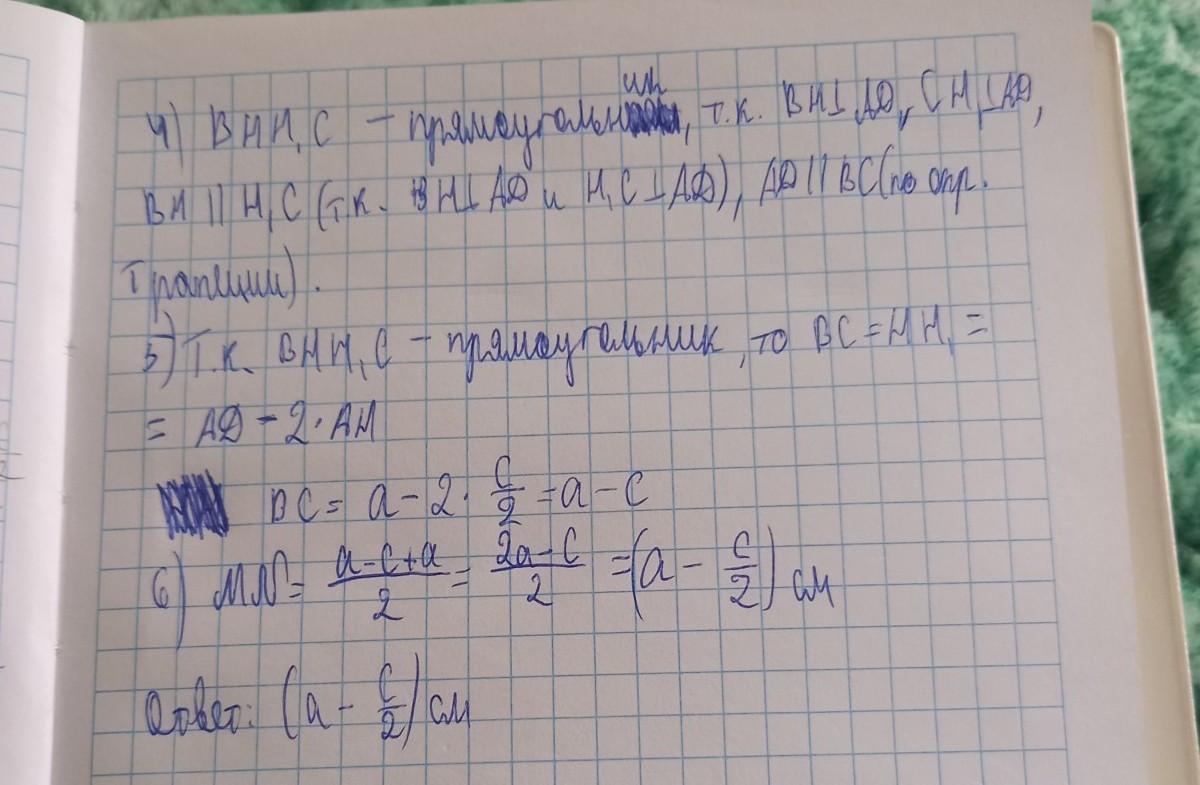 4) BHH₁C – прямоугольник, т.к. BH⊥AD, CH₁⊥AD,
BH || H₁C (т.к. BH⊥AD и H₁C⊥AD), AD||BC (по опр.
трапеции).
5) Т.к. BHH₁C – прямоугольник, то BC = HH₁ =
= AD – 2·AH
BC = a – 2·c/2 = a – c
6) MN = (a–c+a)/2 = (2a–c)/2 = (a – c/2) см
Ответ: (a – c/2) см